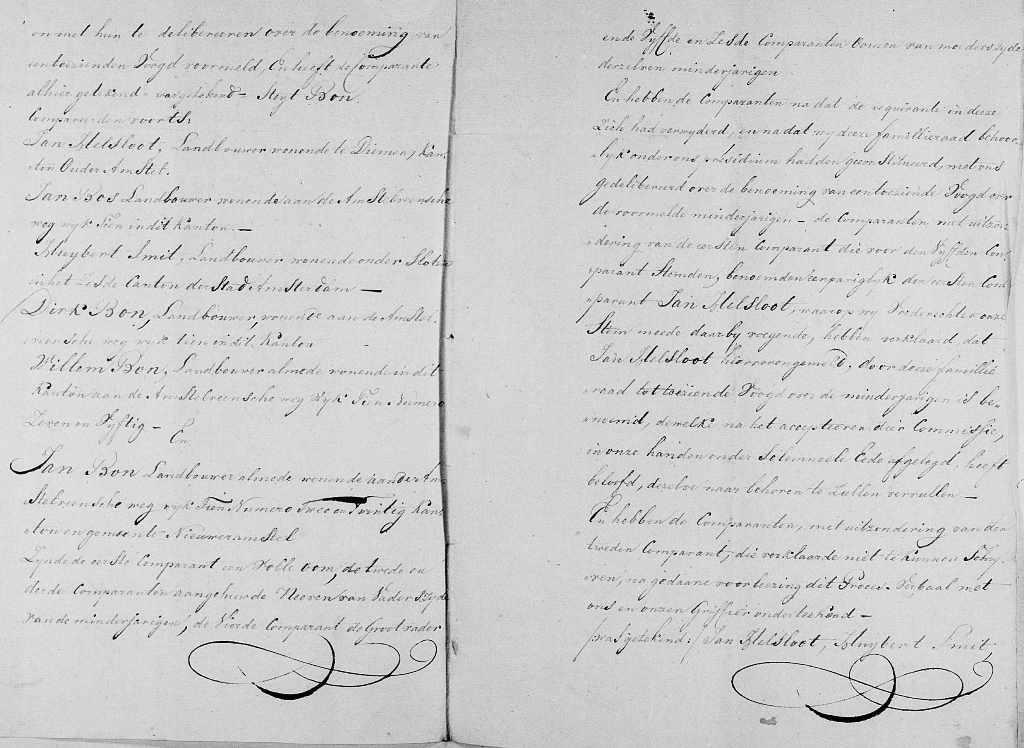 en met hun te delibereeren over de benoeming van
een toezienden Voogd voormeld, En heeft de Comparante
alhier getekend - was getekend - Steyt Bon.
Compareerden voorts.
Jan Melsloot, Landbouwer wonende te Diemen, Kan-
ton Ouder Amstel.
Jan Bos Landbouwer wonende aan de Amstelveensche
weg wyk Tien in dit Kanton. —
Huybert Smit, Landbouwer wonende onder Sloten
in het Zesde Canton der Stad Amsterdam —
Dirk Bon, Landbouwer, wonende aan de Amstel-
veensche weg wyk tien in dit Kanton
Willem Bon, Landbouwer almede wonende in dit
Kanton aan de Amstelveensche weg Wyk Tien Numero
Zeven en Vyftig — En
Jan Bon Landbouwer almede wonende aan de Am-
stelveensche weg wyk Tien Numero Twee en Twintig Kan-
ton en gemeente Nieuwer amstel
Zynde de eerste Comparant een volle oom, de twede en
derde Comparanten aangehuwde Neeven van Vaders Zyde
van de minderjarigen, de Vierde Comparant de Grootvader
en de Vyffde en Zesde Comparanten Oomen van moeders zyde
derzelven minderjarigen
En hebben de Comparanten na dat de requirante in deeze
zich had verwyderd, en na dat wy deeze familieraad behoor-
lyk onder ons presidium hadden geconstitueerd, met ons
gedelibereerd over de benoeming van een toeziende Voogd over
de voormelde minderjarigen - de Comparanten met uitzon-
dering van de eersten Comparant die voor den Vyffden Com-
parant stemden, benoemden eenpariglyk den eersten Com-
parant Jan Melsloot, waarop wy Vrederechter onze
Stem meede daarby voegende, hebben verklaard dat
Jan Melsloot hiervorengemeld, door deeze famillie
raad tot toeziende Voogd over de minderjarigen is be-
noemd, dewelke na het accepteeren dier Commissie,
in onze handen onder Solemneele Eede afgelegd, heeft
beloofd, dezelve naar behoren te zullen vervullen —
En hebben de Comparanten, met uitzondering van den
tweden Comparant, die verklaarde niet te kunnen Schry-
ven, na gedaane voorleezing dit Proces Verbaal met
ons en onzen Griffier ondertekend —
/was getekend:/ Jan Melsloot, Huybert Smit,